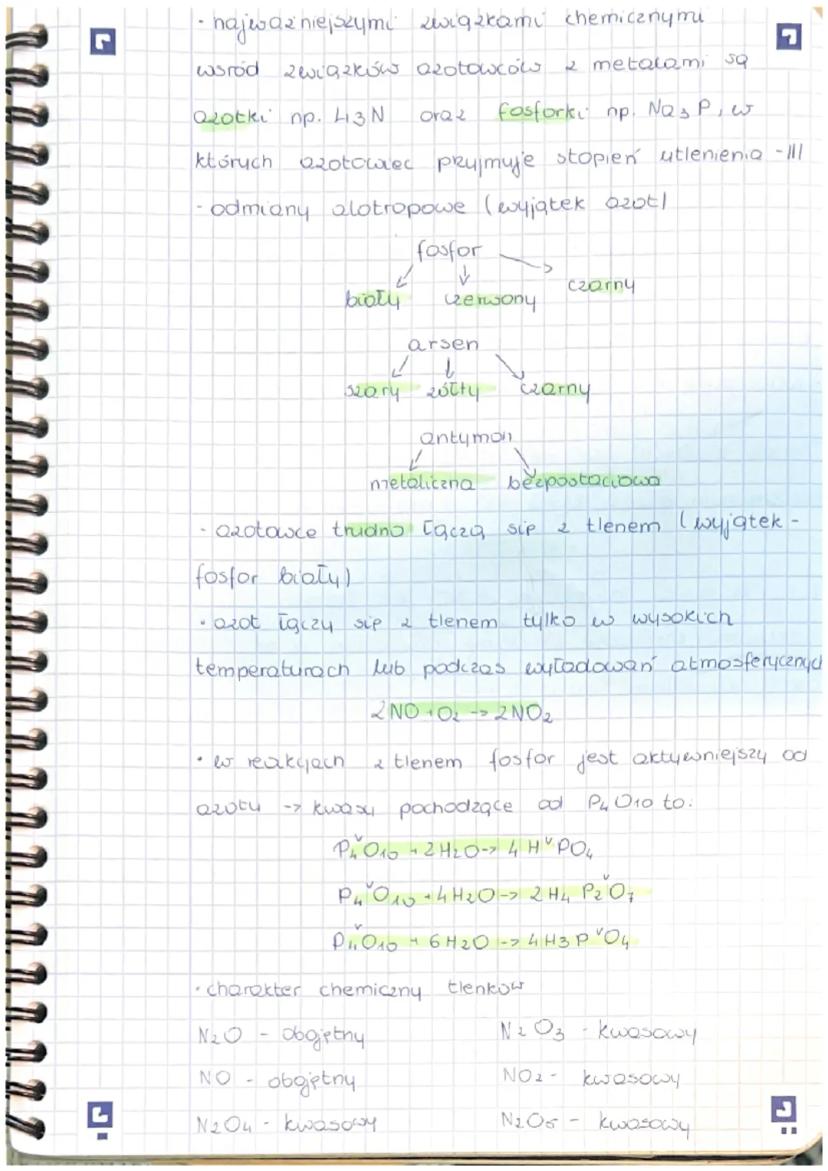 · najważniejszymi związkami chemicznymi
wśród związków azotowców z metalami są
azotki np. Li3N oraz fosforki np. Na3P, w
których azotowiec przyjmuje stopień utlenienia -III
- odmiany alotropowe (wyjątek azot)
fosfor
biały czerwony czarny
arsen
szary żółty czarny
antymon
metaliczna bezpostaciowa
- azotowce trudno łączą się z tlenem (wyjątek -
fosfor biały)
· azot łączy się z tlenem tylko w wysokich
temperaturach lub podczas wyładowań atmosferycznych
2NO + O2 -> 2NO2
· w reakcjach z tlenem fosfor jest aktywniejszy od
azotu -> kwasy pochodzące od P4O10 to:
P4^V O10 + 2H2O -> 4 H^V PO4
P4^V O10 + 4H2O -> 2 H4 P2^V O7
P4^V O10 + 6H2O -> 4H3P^V O4
· charakter chemiczny tlenków
N2O - obojętny N2O3 - kwasowy
NO - obojętny NO2 - kwasowy
N2O4 - kwasowy N2O5 - kwasowy